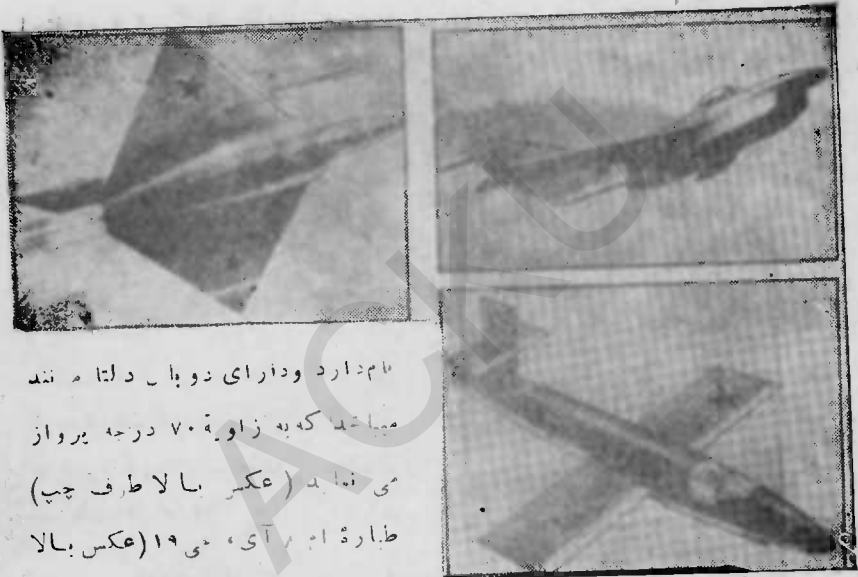 نام دارد ودارای دو بال دلتا مانند
میباشد که به زاویهٔ ۷۰ درجه پرواز
می نماید (عکس بالا طرف چپ)
طیارهٔ ام آی، جی ۱۹ (عکس بالا
ACKU